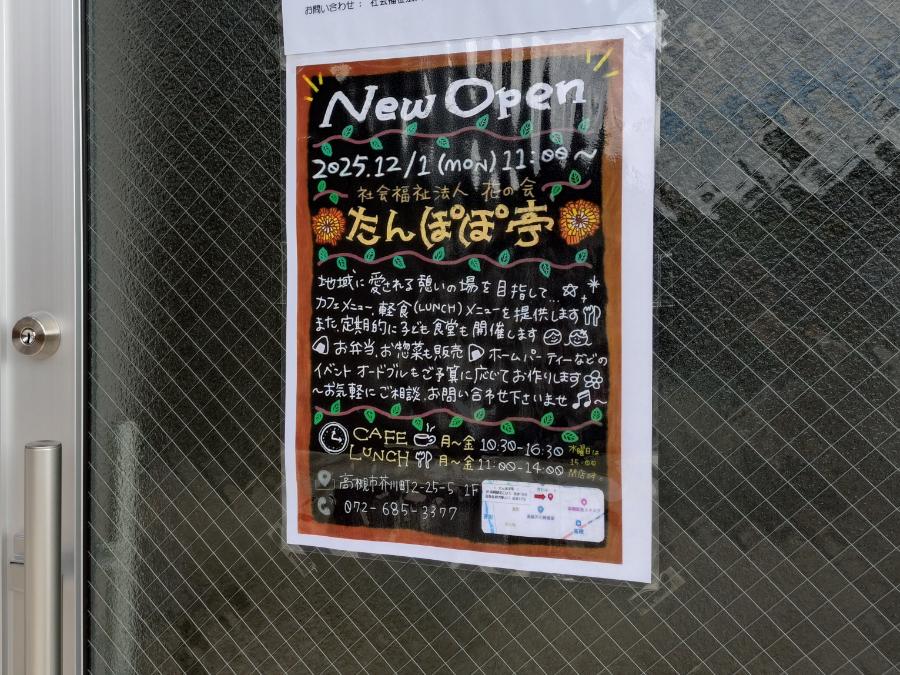 お問い合わせ： 社会福祉法人
New Open
2025.12/1 (MON) 11:00～
社会福祉法人 花の会
たんぽぽ亭
地域に愛される憩いの場を目指して…
カフェメニュー、軽食(LUNCH)メニューを提供します
また、定期的に子ども食堂も開催します
お弁当、お惣菜も販売 ホームパーティーなどの
イベントオードブルもご予算に応じてお作りします
～お気軽にご相談、お問い合わせ下さいませ～
CAFE 月～金 10:30-16:30
LUNCH 月～金 11:00-14:00
水曜日は
15:00
閉店です
高槻市芥川町2-25-5 1F
072-685-3377